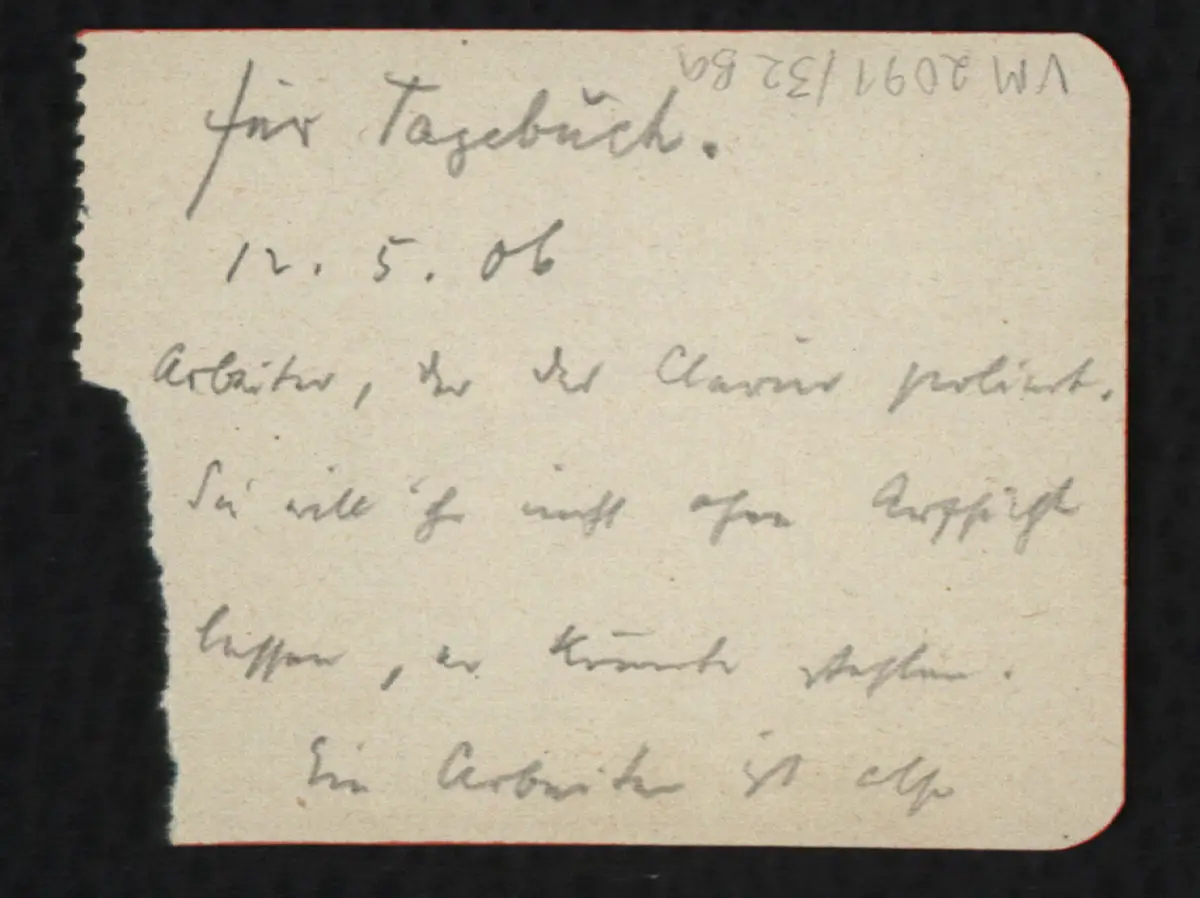 VM 2091/32 Ba
für Tagebuch.
12. 5. 06
Arbeiter, der das Clavier poliert.
Sie will ihn nicht ohne Aufsicht
lassen, er könnte stehlen.
Ein Arbeiter ist also